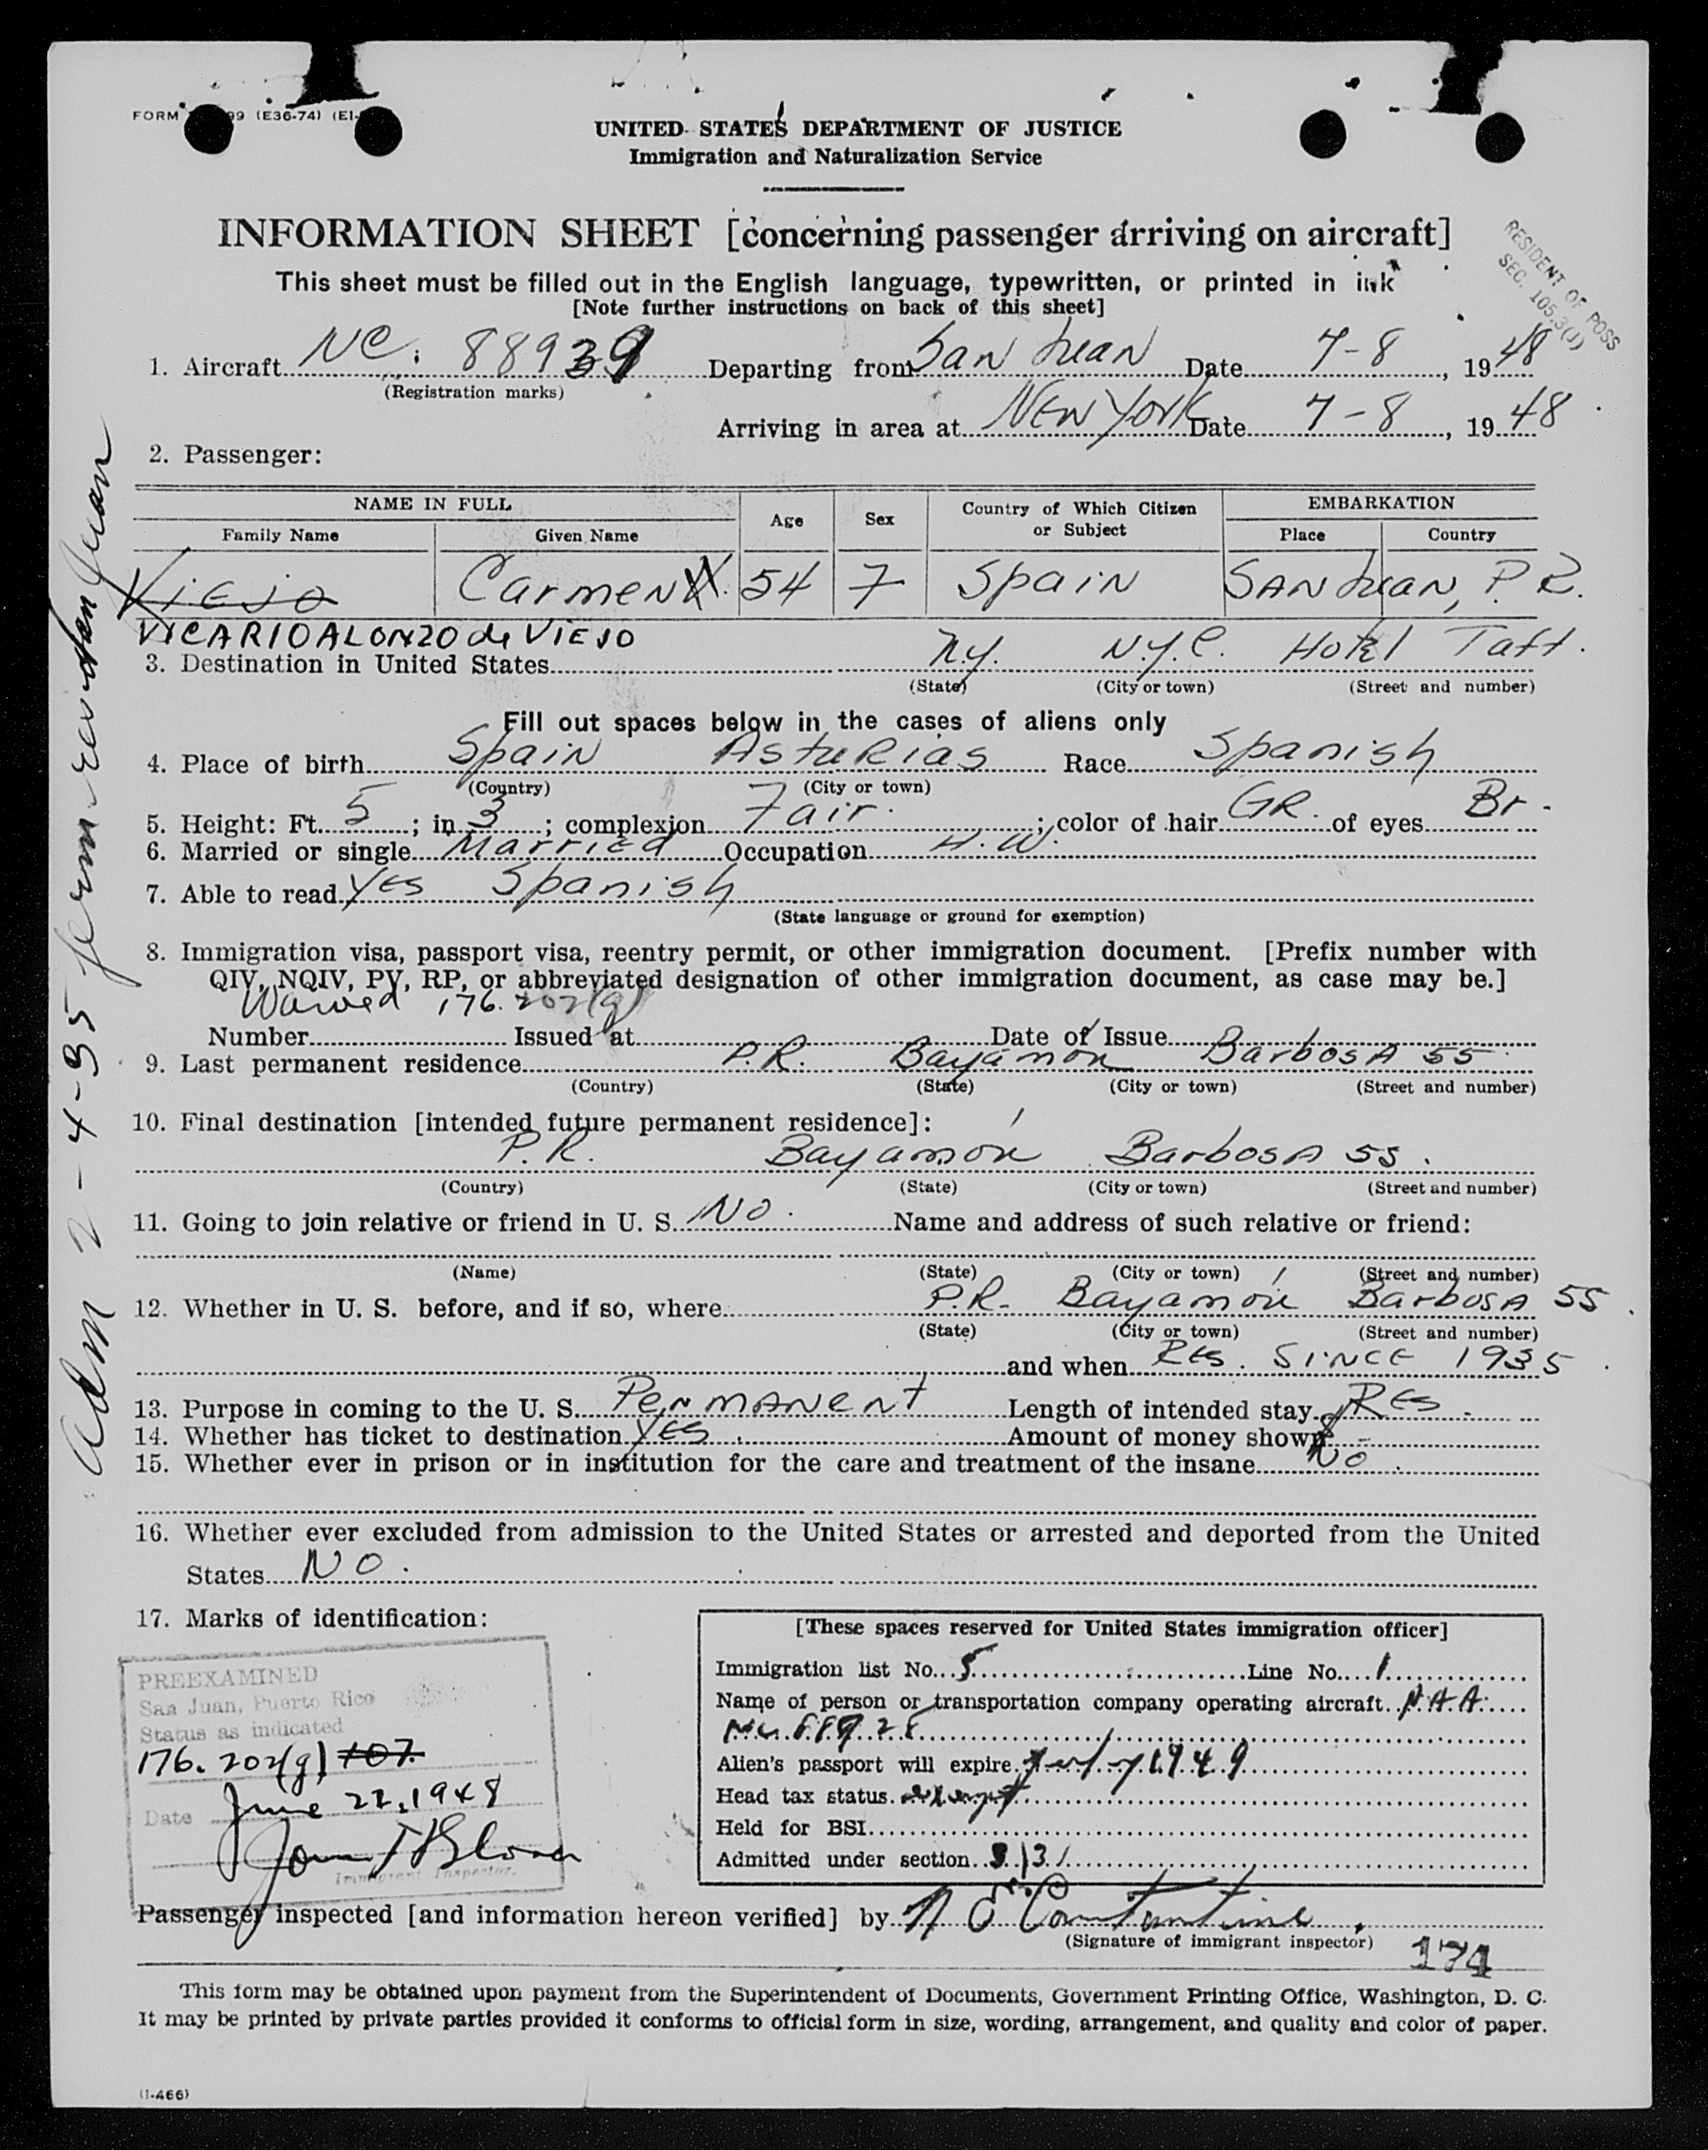 FORM 99 (E36-74) (EI-
UNITED STATES DEPARTMENT OF JUSTICE
Immigration and Naturalization Service
INFORMATION SHEET [concerning passenger arriving on aircraft]
RESIDENT OF POSS
SEC. 105.3(J)
This sheet must be filled out in the English language, typewritten, or printed in ink
[Note further instructions on back of this sheet]
1. Aircraft NC. 88939 Departing from San Juan Date 7-8, 1948
(Registration marks)
Arriving in area at New York Date 7-8, 1948
2. Passenger:
NAME IN FULL Age Sex Country of Which Citizen or Subject EMBARKATION
Family Name Given Name Place Country
Viejo Carmen 54 F Spain San Juan, P.R.
VICARIO ALONZO de VIEJO
3. Destination in United States N.Y. N.Y.C. Hotel Taft.
(State) (City or town) (Street and number)
Fill out spaces below in the cases of aliens only
4. Place of birth Spain Asturias Race Spanish
(Country) (City or town)
5. Height: Ft. 5; in 3; complexion Fair.; color of hair GR. of eyes Br.
6. Married or single Married Occupation H.W.
7. Able to read Yes Spanish
(State language or ground for exemption)
8. Immigration visa, passport visa, reentry permit, or other immigration document. [Prefix number with
QIV, NQIV, PV, RP, or abbreviated designation of other immigration document, as case may be.]
Waived 176.202(g)
Number Issued at Date of Issue
9. Last permanent residence P.R. Bayamón Barbosa 55
(Country) (State) (City or town) (Street and number)
10. Final destination [intended future permanent residece]:
P.R. Bayamón Barbosa 55.
(Country) (State) (City or town) (Street and number)
11. Going to join relative or friend in U. S. No. Name and address of such relative or friend:
(Name) (State) (City or town) (Street and number)
12. Whether in U. S. before, and if so, where P.R. Bayamón Barbosa 55.
(State) (City or town) (Street and number)
and when Res. SINCE 1935.
13. Purpose in coming to the U. S. Permanent Length of intended stay Res.
14. Whether has ticket to destination Yes. Amount of money shown $ -
15. Whether ever in prison or in institution for the care and treatment of the insane No.
16. Whether ever excluded from admission to the United States or arrested and deported from the United
States No.
17. Marks of identification:
PREEXAMINED
San Juan, Puerto Rico
Status as indicated
176.202(g) 107.
Date June 22, 1948
Immigrant Inspector.
[These spaces reserved for United States immigration officer]
Immigration list No. 5 Line No. 1
Name of person or transportation company operating aircraft N.A.A.
NC 88928
Alien's passport will expire July 1949
Head tax status exempt
Held for BSI
Admitted under section 3.)3.1
Passenger inspected [and information hereon verified] by Constantine
(Signature of immigrant inspector)
174
This form may be obtained upon payment from the Superintendent of Documents, Government Printing Office, Washington, D. C.
It may be printed by private parties provided it conforms to official form in size, wording, arrangement, and quality and color of paper.
(I-466)
Adm 2-4-35 perm San Juan